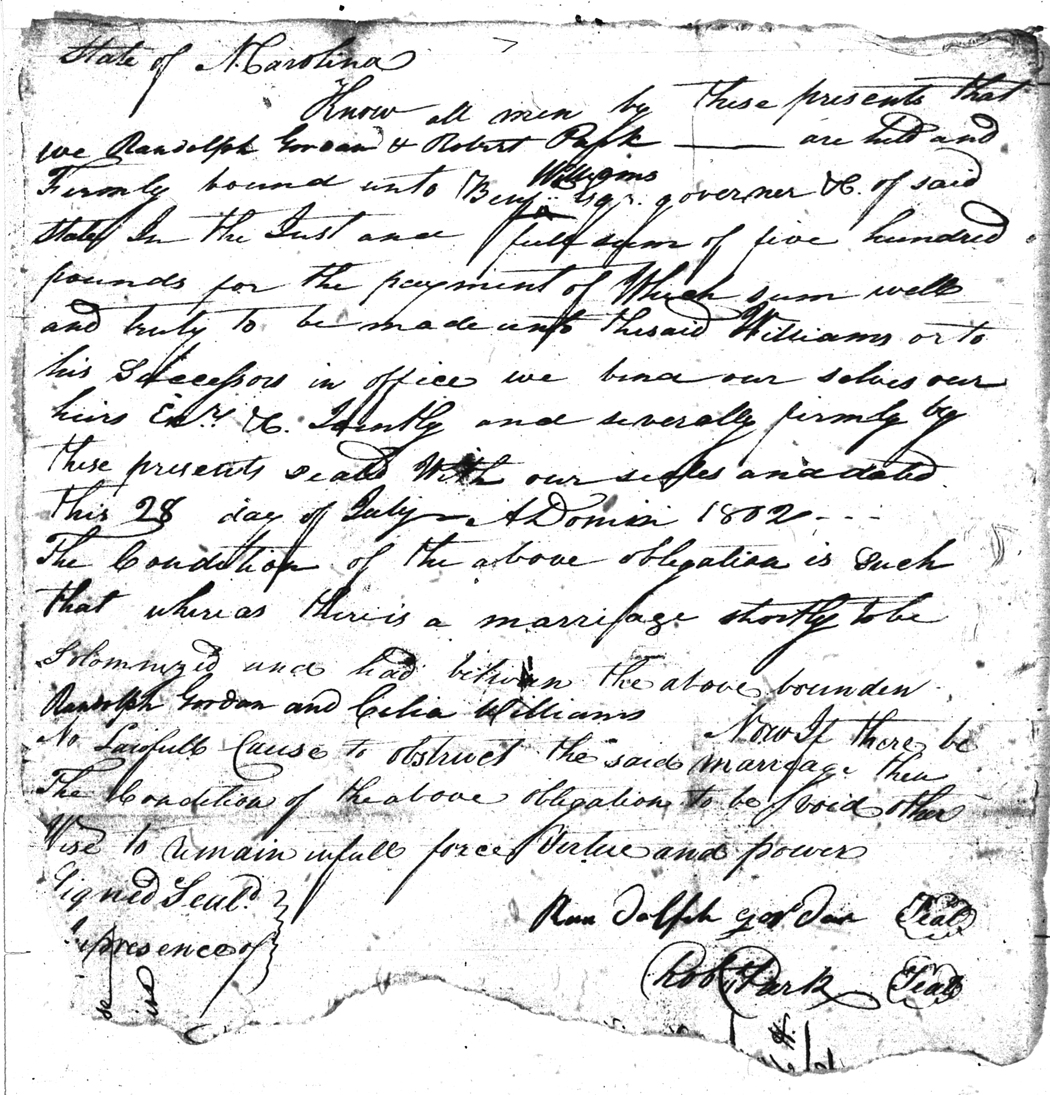 State of N. Carolina
Know all men by these presents that
we Randolph Gordan & Robert Park are held and
Firmly bound unto Benj. Williams Esqr. governer &C. of said
State In the Just and full sum of five hundred
pounds for the payment of Which sum well
and truly to be made unto the said Williams or to
his Successors in office we bind our selves our
heirs Exr. &C. Jointly and severally firmly by
these presents seald With our seales and dated
this 28 day of July A Domin 1802
The Condition of the above obligation is Such
that whereas there is a marriage shortly to be
Solomnized and had between the above bounden
Randolph Gordan and Celia Williams Now If there be
No Lawfull Cause to obstruct the said marriage then
The Condition of the above obligation to be void other
Wise to remain in full force Virtue and power
Signed Seald
presence of
Randolph gordan Seal
Robt Park Seal